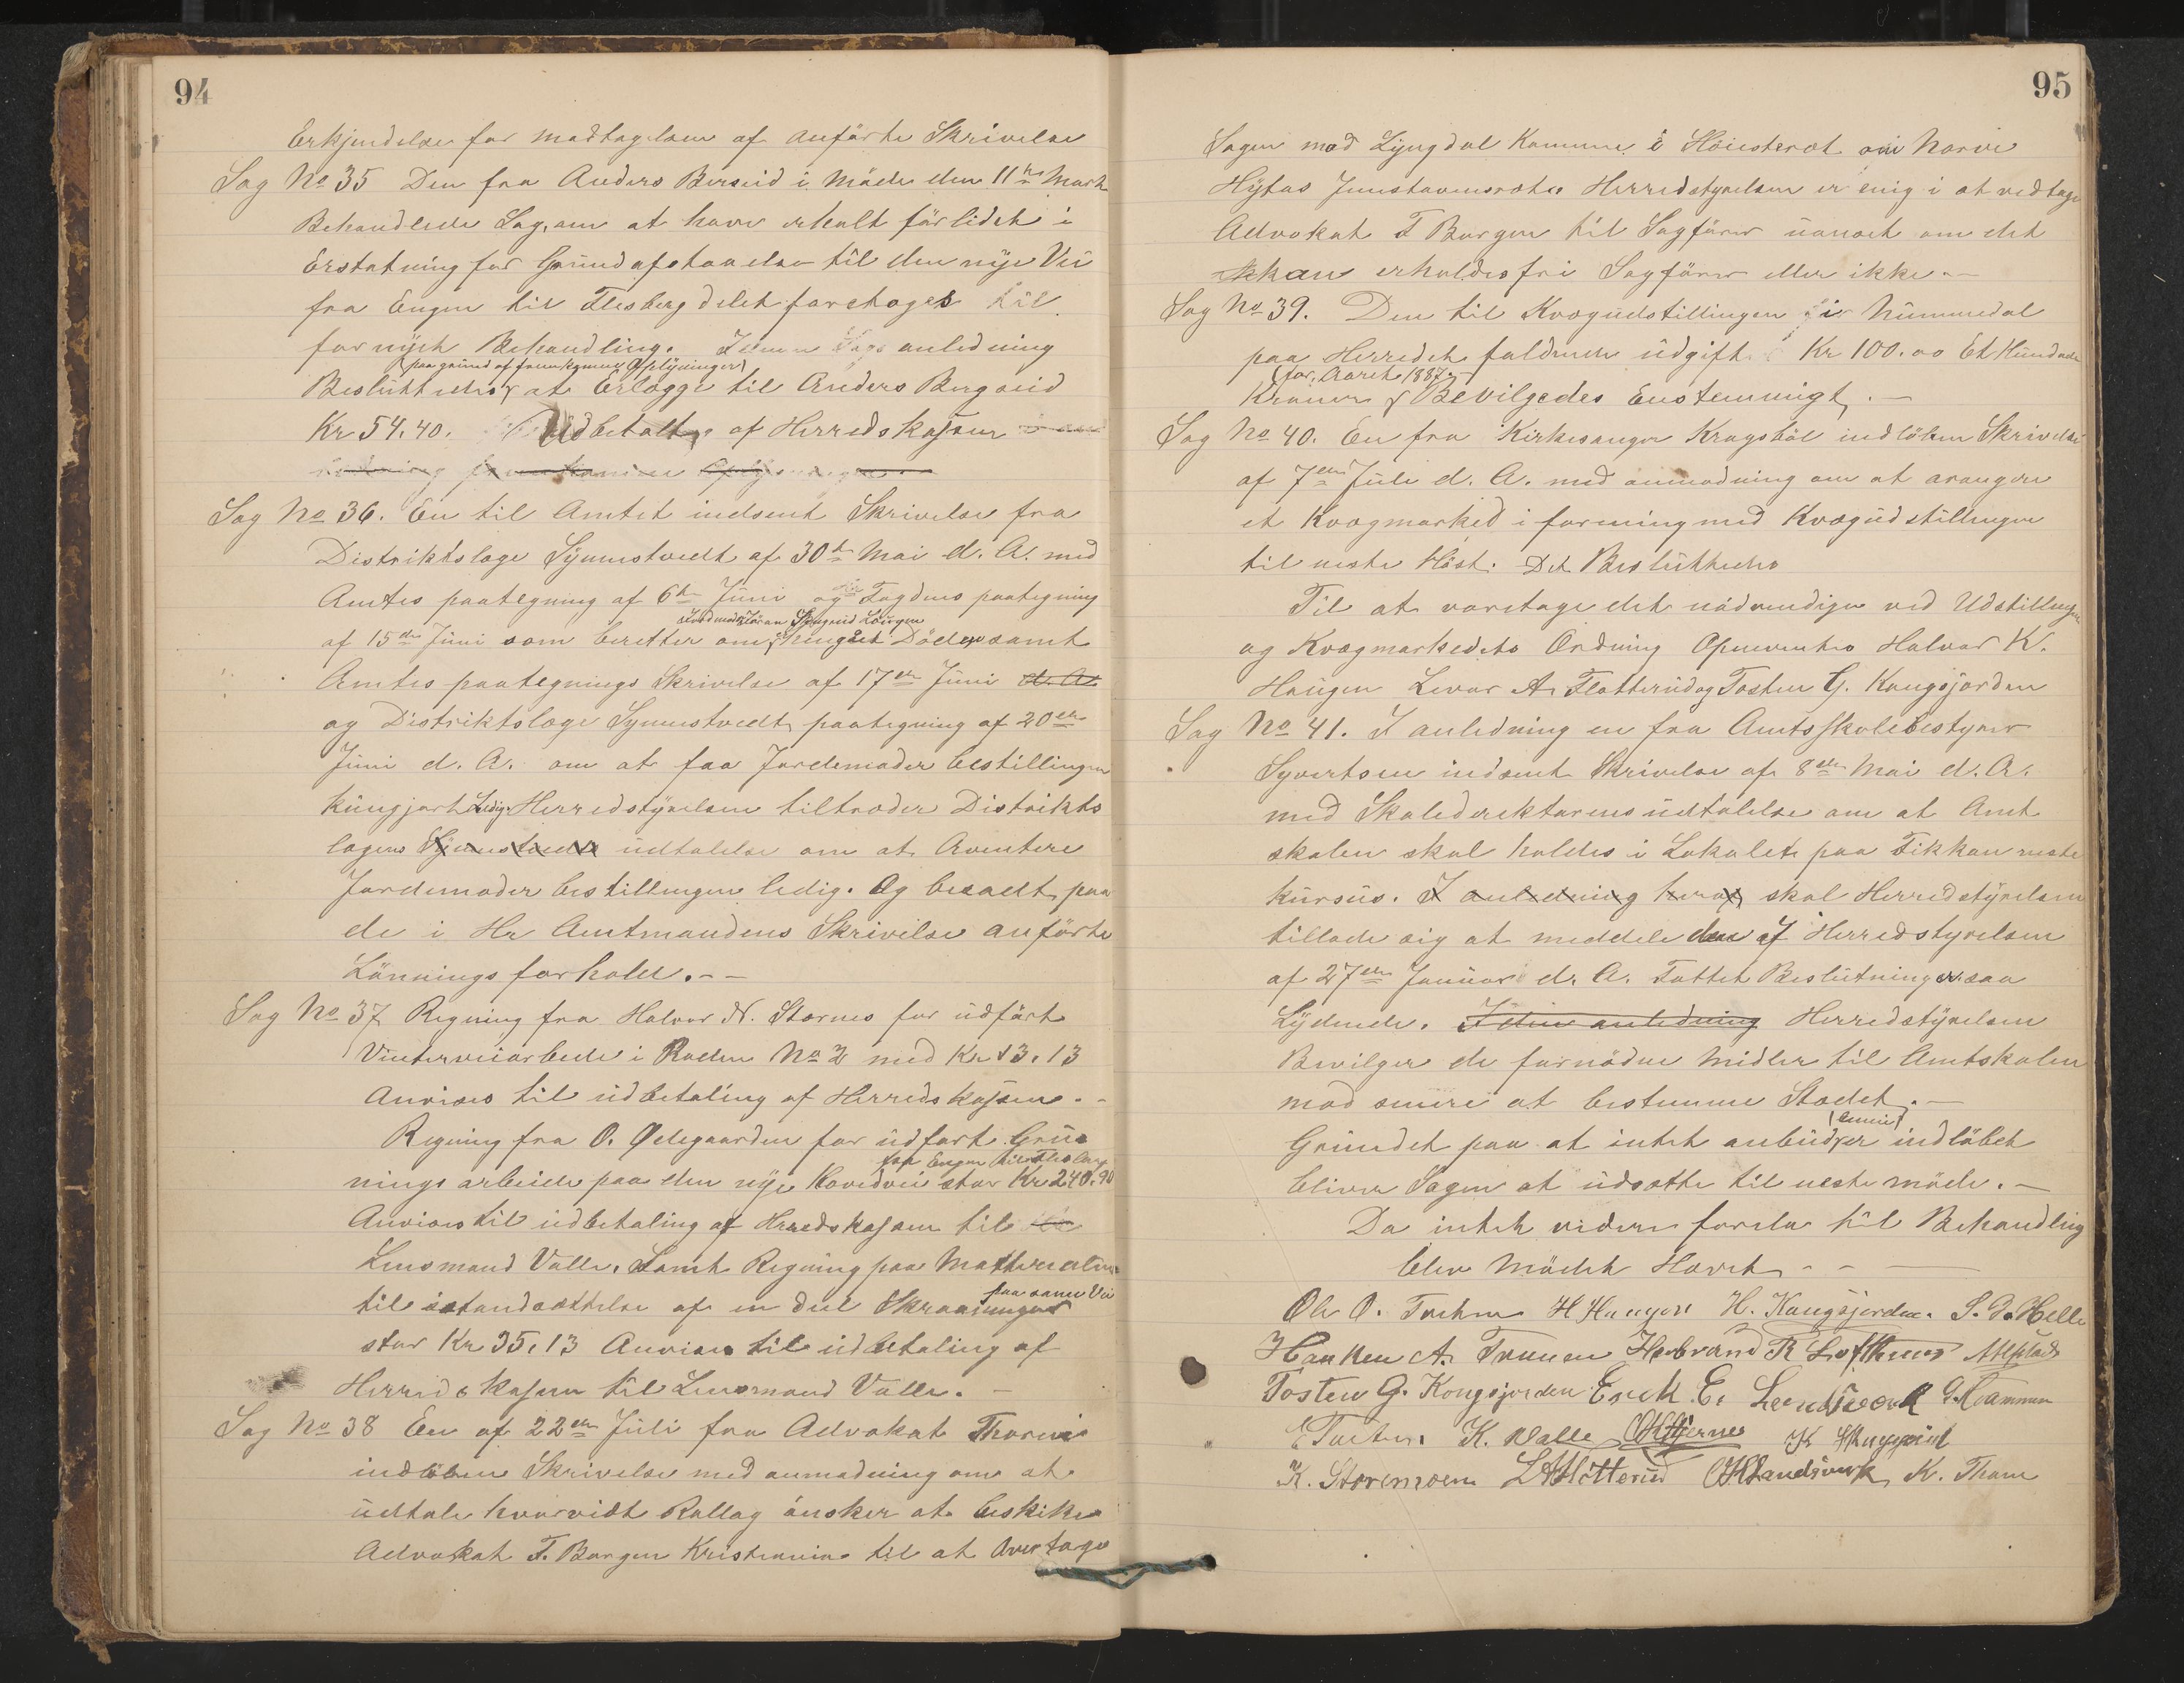 94
Erkjendelse for modtagelsen af anförte Skrivelse
Sag No 35 Den fra Anders Berseid i Möde den 11te Marts
Behandlede Sag, om at have erholt förlidet i
Erstatning for Grundafstaaelse til den nye Vei
fra Engen til Flesberg delet foretoges til
fornyet Behandling. I denne Sags anledning
(paa grund af fremkomne Oplysninger)
Besluttedes at Erlægge til Anders Bergseid
Kr 54.40. Udbetalt af Herredskassen
Sag No 36. En til Amtet indsent Skrivelse fra
Distriktslæge Synnestvedt af 30te Mai d. A. med
Amtes paategning af 6te Juni og Fogdens paategning
Jordmoder Jöran Lougen
af 15de Juni som beretter om Döde samt
Amtes paategnings Skrivelse af 17de Juni d. A.
og Distriktslæge Synnestvedts paategning af 20de
Juni d. A. om at faa Jordemoder bestillingen
kungjort Ledig. Herredstyrelsen tiltræder Distrikts
lægens Synnestvedts udtalelse om at Aventere
Jordemoder bestillingen ledig. Og besadt paa
de i Hr Amtmandens Skrivelse anförte
Lönnings forhold. - -
Sag No 37 Regning fra Halvor N. Stærnes for udfört
Vinterveiarbeide i Roden No 2 med Kr 13.13
Anvises til udbetaling af Herredskassen. -
Regning fra O. Ödegaarden for udfört Grus
fra Engen til Flesberg
nings arbeide paa den nye Hovedvei stor Kr 240.90
Anvises til udbetaling af Herredskassen til
Lensmand Valle. Samt Regning paa Matterialer
paa samme Vei
til istandsættelse af en deel Skraaninger
stor Kr 35.13 Anvises til udbetaling af
Herredskassen til Lensmand Valle. -
Sag No 38 En af 22de Juli fra Advokat
indlöben Skrivelse med anmodning om at
udtale hvorvidt Rollag önsker at beskikke
Advokat F. Borgen Kristiania til at Overtage
95
Sagen mod Lyngdal Komune i Höiesteret om Norve
Hyttas Herredstyrelsen er enig i at vedtage
Advokat F Borgen til Sagförer uanset om det
kkan erholdes fri Sagförer eller ikke. -
Sag No 39. Den til Kvægudstillingen i Nummedal
paa Herredet faldende udgift Kr 100.00 Et Hundrede
(for Aaret 1887.-
Kroner Bevilgedes Enstemmigt. -
Sag No 40. En fra Kirkesanger Kragsböl indlöben Skrivelse
af 7de Juli d. A. med anmodning om at arangere
et Kvægmarked i forening med Kvægudstillingen
til neste Höst. Det Besluttedes
Til at varetage det nödvendige ved Udstillingen
og Kvægmarkedets Ordning Opnevntes Halvor K.
Haugen Levor A. Flatterud og Tosten G. Kongsjorden
Sag No 41. I anledning en fra Amtsskolebestyrer
Syvertsen indsent Skrivelse af 8de Mai d. A.
med Skoledirektørens udtalelse om at Amt
skolen skal holdes i Lokalet paa Fikkan neste
kursus. I anledning heraf skal Herredstyrelsen
tillade sig at meddele den af Herredstyrelsen
af 27de Januar d. A. Fattet Beslutninger saa
Lydende. I den anledning Herredstyrelsen
Bevilger de fornödne Midler til Amtskolen
mod senere at bestemme Stedet. -
Grundet paa at intet anbud er indlöbet
bliver Sagen at udsætte til neste möde. -
Da intet videre forelaa til Behandling
blev Mödet Hævet - - -
Ole O. H Haugen H. Kongsjorden. S. G. Helle
A. Herbrand R Lofthuus
Tosten G. Kongsjorden Erick E.
K. Valle
K. Storemoen L A Flatterud K. Thom